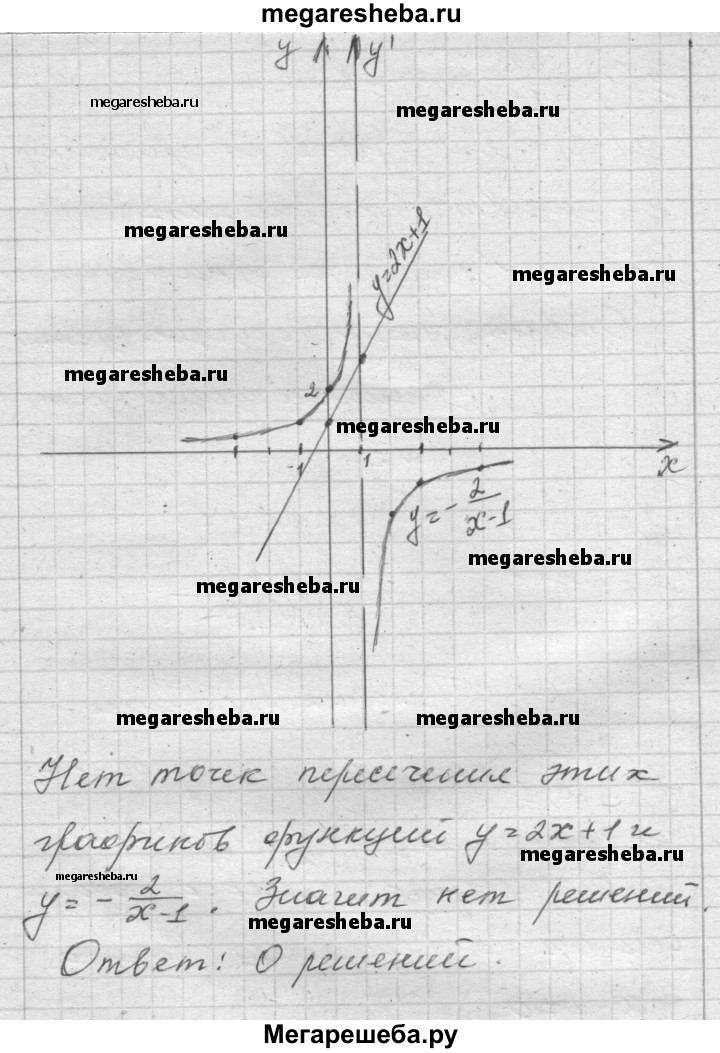 megaresheba.ru
y y'
megaresheba.ru
megaresheba.ru
megaresheba.ru
y=2x+1
megaresheba.ru
megaresheba.ru
2
megaresheba.ru
-1 1 x
y = - 2/(x-1)
megaresheba.ru
megaresheba.ru
megaresheba.ru megaresheba.ru
Нет точек пересечения этих
графиков функций y=2x+1 и
megaresheba.ru
megaresheba.ru
y = - 2/(x-1). Значит нет решений.
megaresheba.ru
Ответ: 0 решений.
Мегарешеба.ру